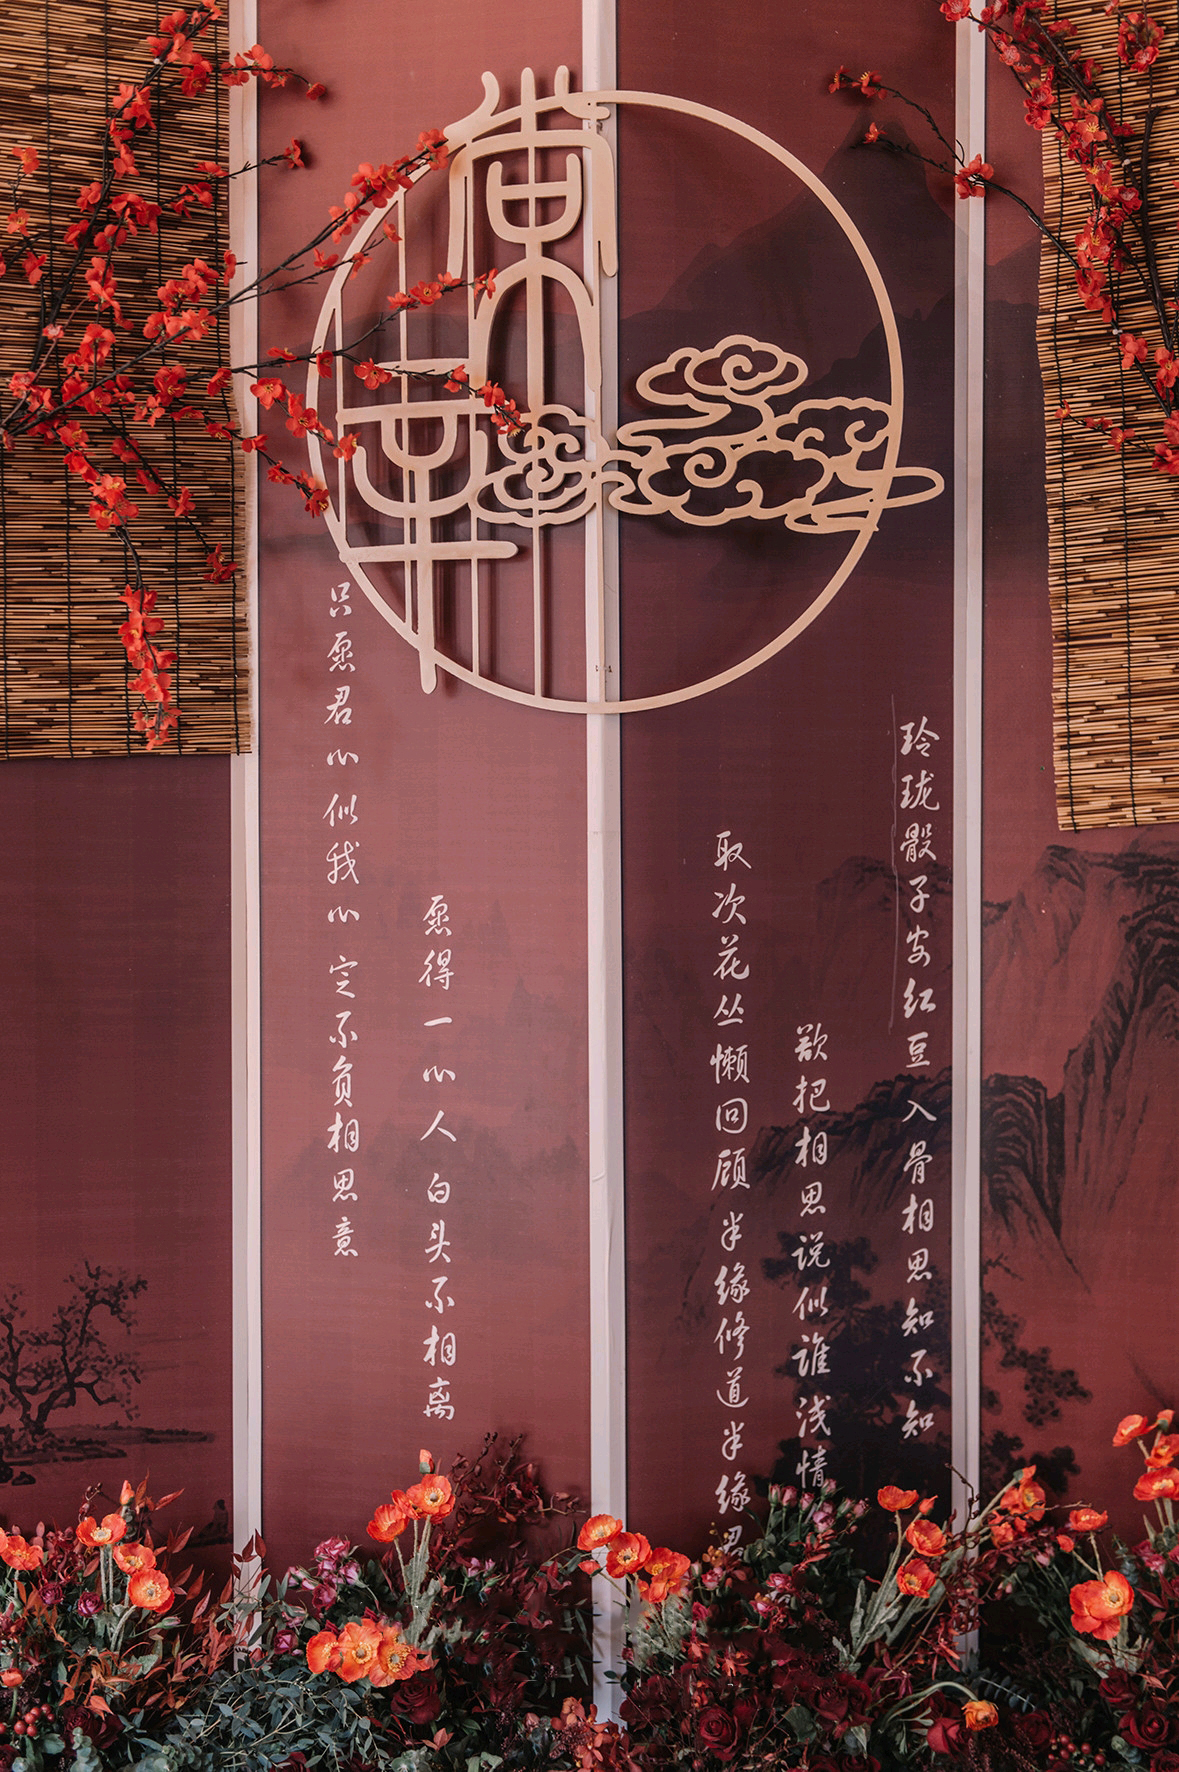 玲珑骰子安红豆入骨相思知不知
欲把相思说似谁浅情
取次花丛懒回顾 半缘修道半缘
愿得一心人白头不相离
只愿君心似我心 定不负相思意